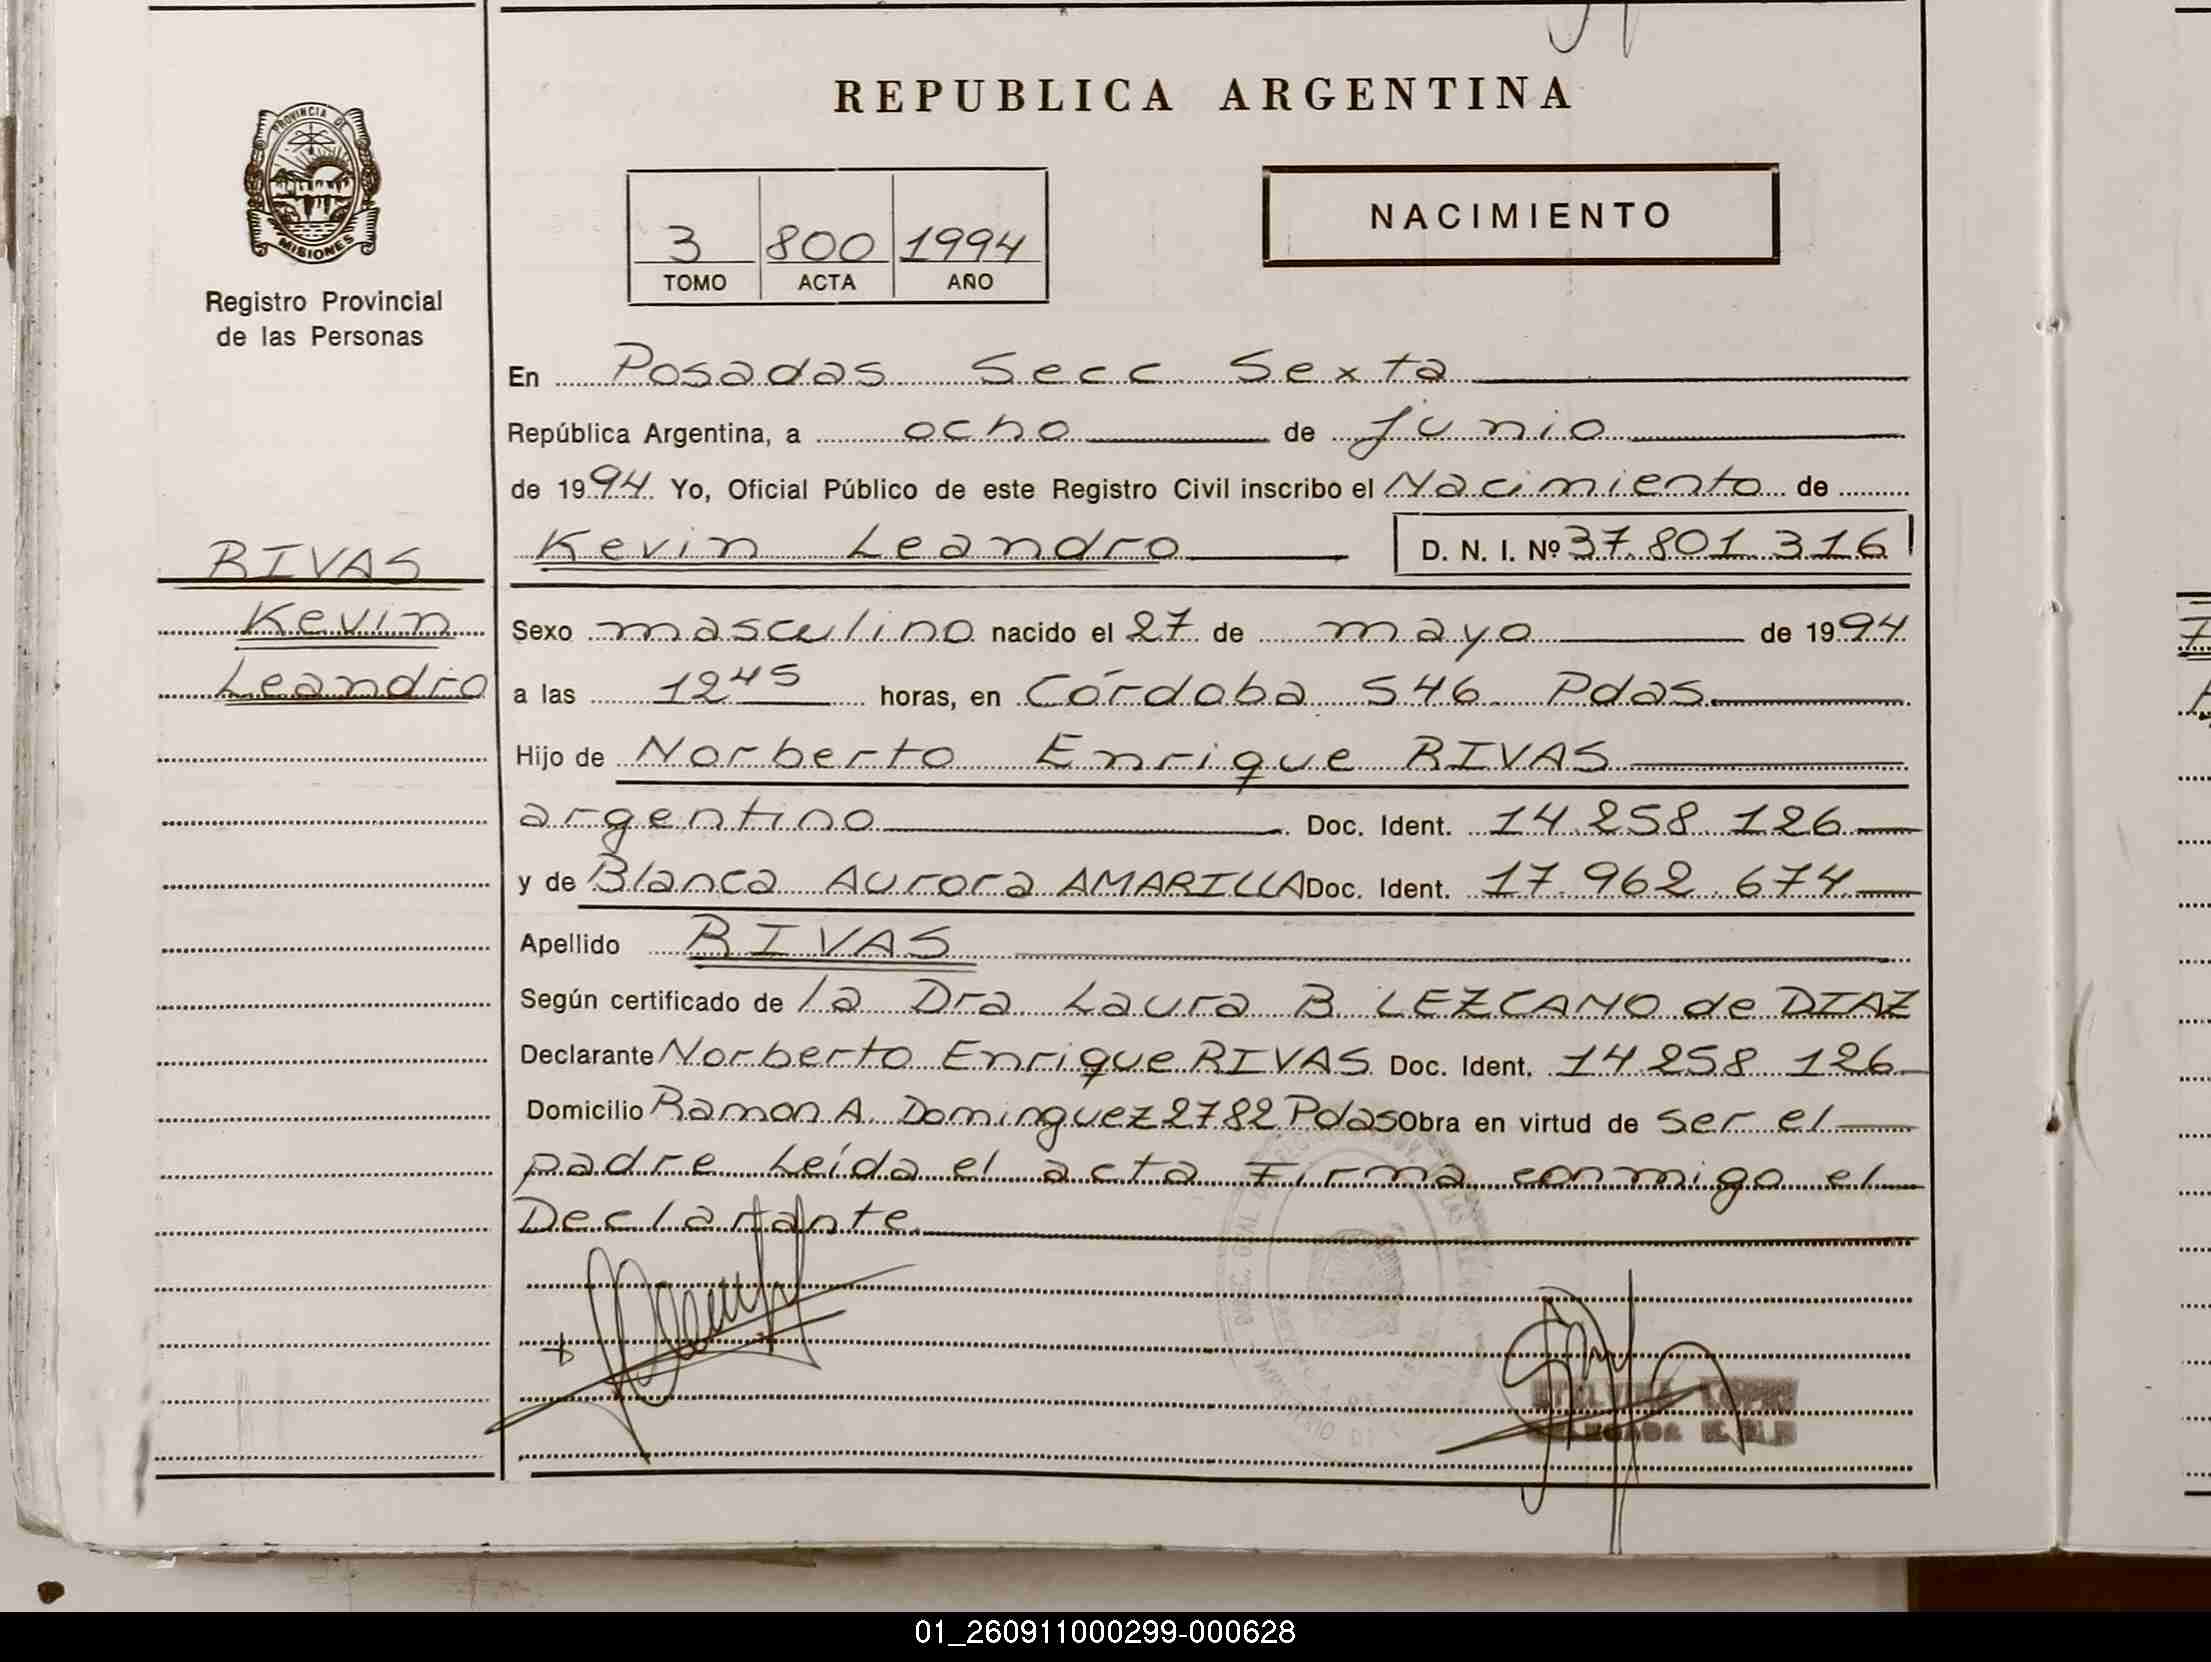 REPUBLICA ARGENTINA
PROVINCIA DE
MISIONES
Registro Provincial
de las Personas
NACIMIENTO
3 800 1994
TOMO ACTA AÑO
En Posadas Secc Sexta
República Argentina, a ocho de junio
de 1994 Yo, Oficial Público de este Registro Civil inscribo el Nacimiento de
Kevin Leandro D. N. I. Nº 37.801.316
RIVAS
Kevin
Leandro
Sexo masculino nacido el 27 de mayo de 1994
a las 12 45 horas, en Córdoba 546 Pdas.
Hijo de Norberto Enrique RIVAS
argentino Doc. Ident. 14.258.126
y de Blanca Aurora AMARILLA Doc. Ident. 17.962.674
Apellido RIVAS
Según certificado de la Dra Laura B LEZCANO de DIAZ
Declarante Norberto Enrique RIVAS Doc. Ident. 14.258.126
Domicilio Ramon A. Dominguez 2782 Pdas Obra en virtud de ser el
padre Leída el acta Firma conmigo el
Declarante
01_260911000299-000628